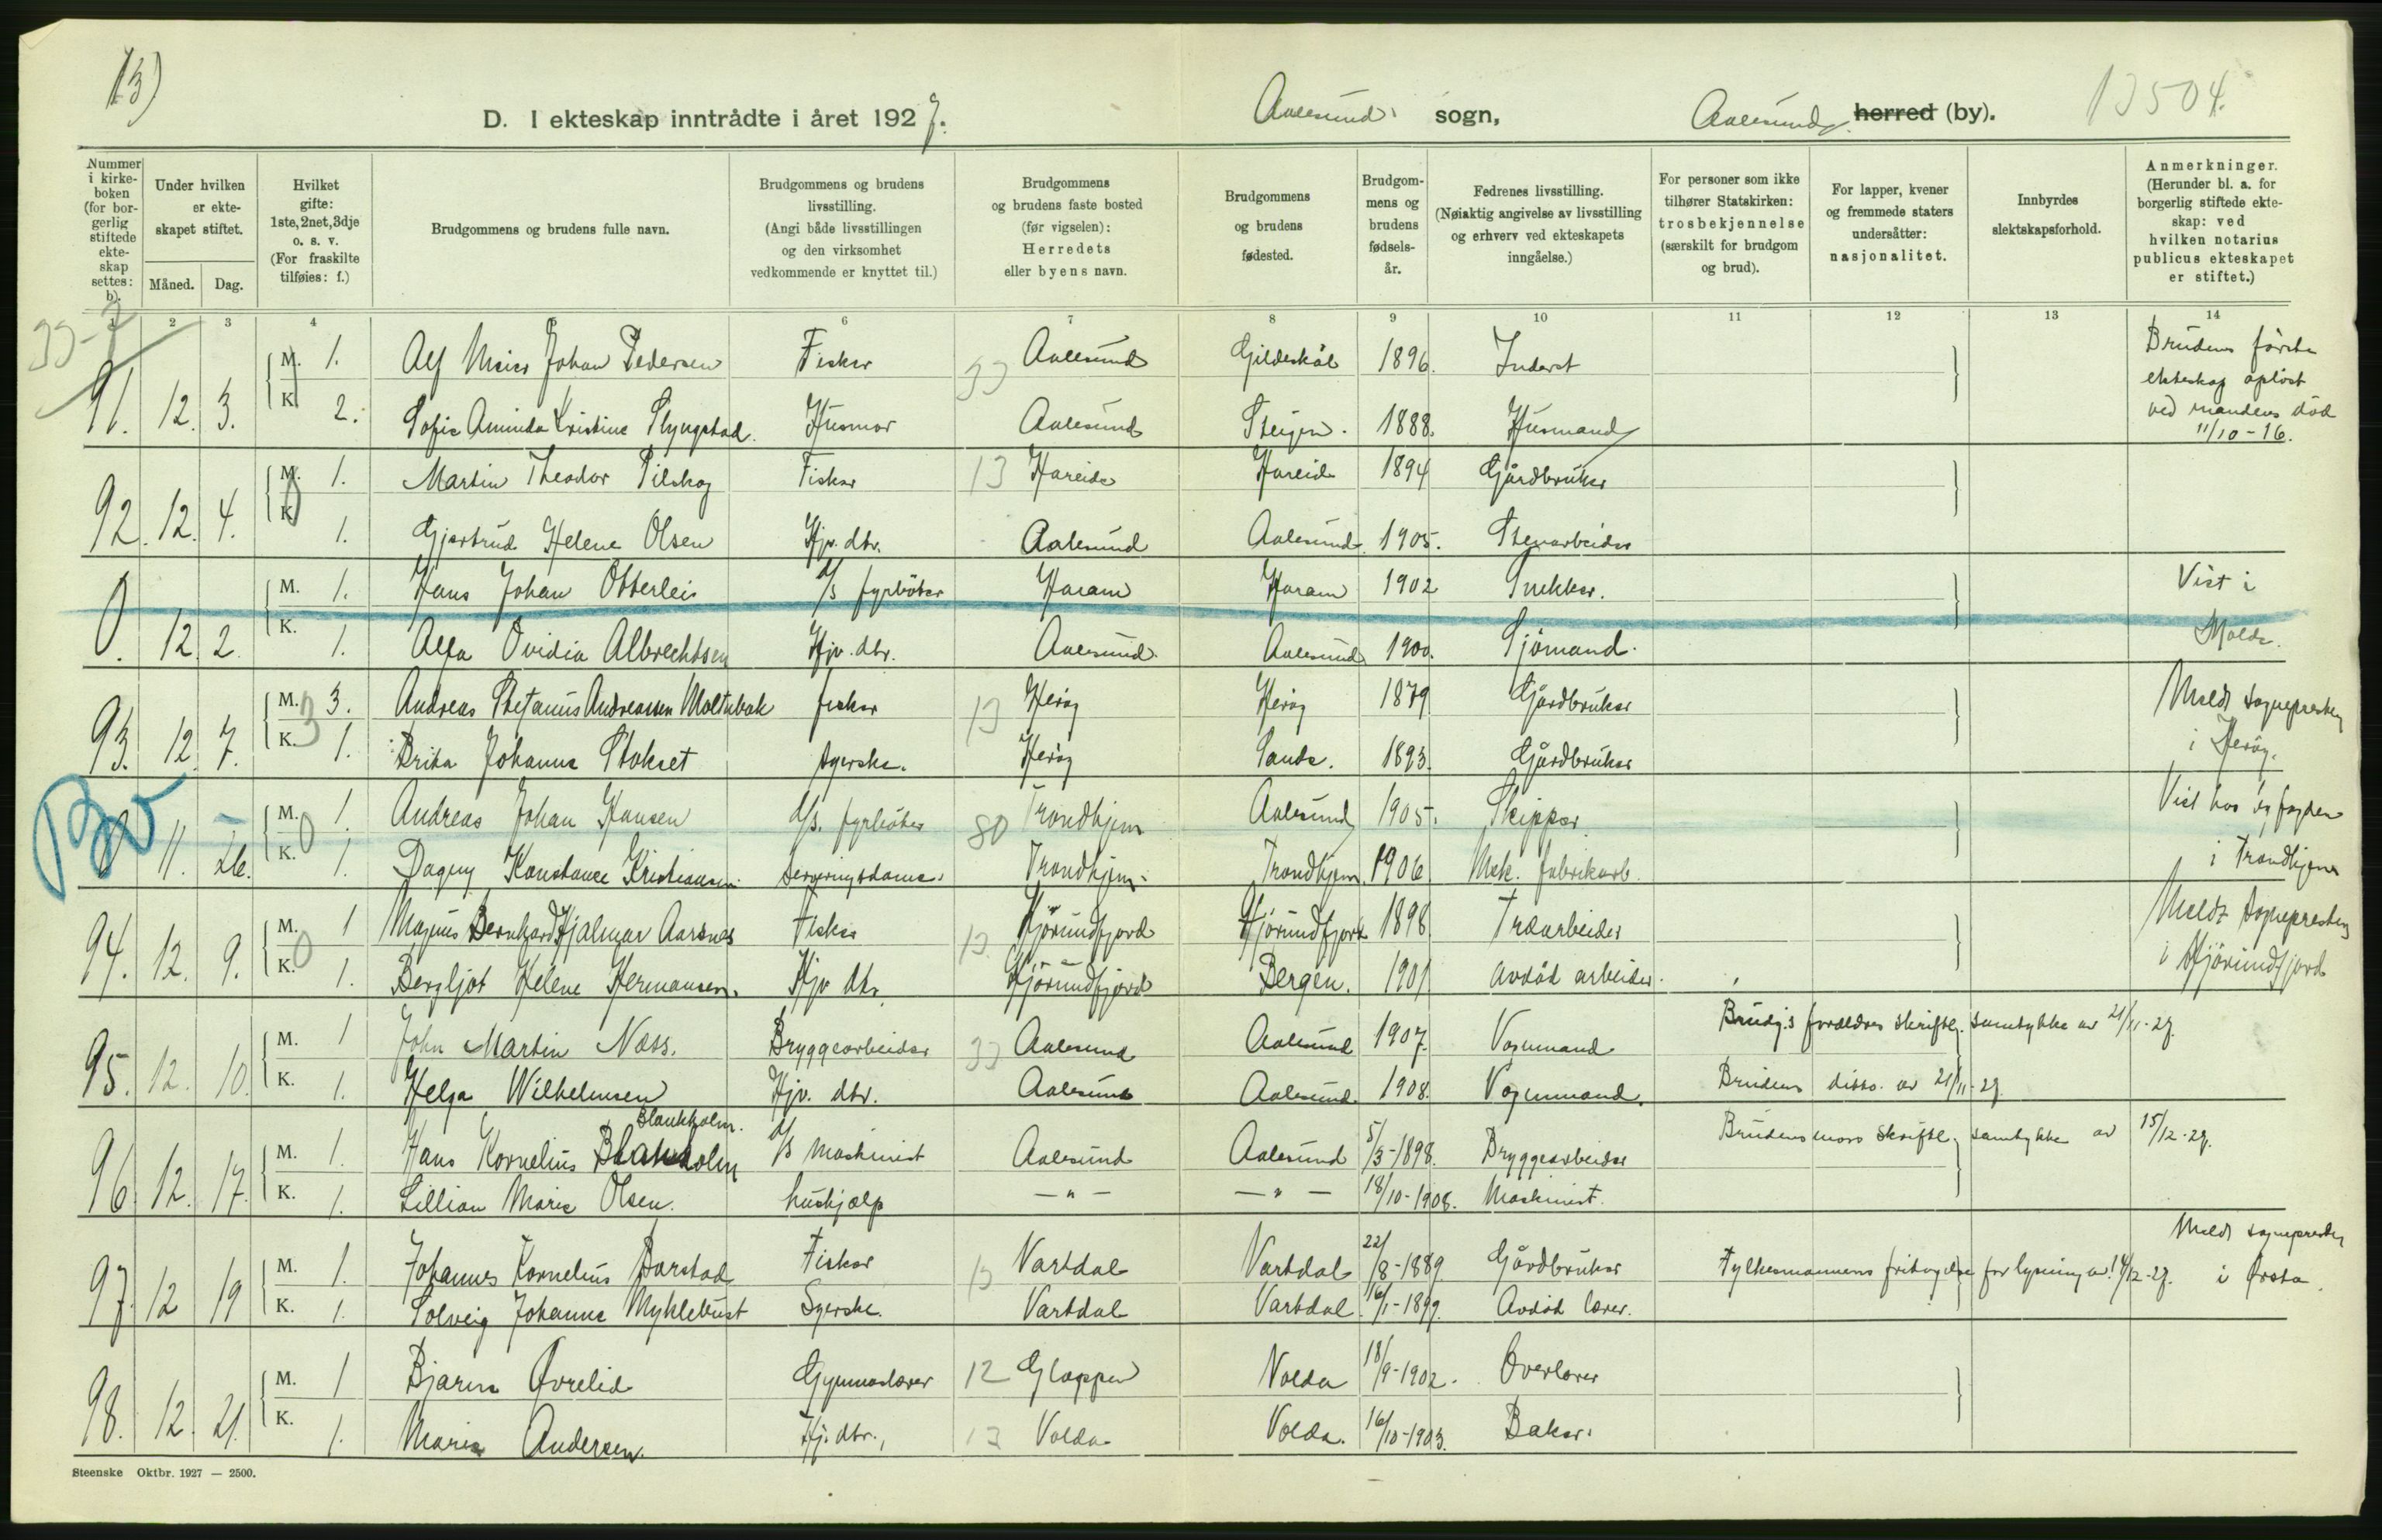 13)
D. I ekteskap inntrådte i året 1927. Aalesund sogn, Aalesund herred (by). 13504.
Nummer i kirke-boken (for bor-gerlig stiftede ekte-skap settes: b).
Under hvilken er ekte-skapet stiftet.
Måned. Dag.
Hvilket gifte: 1ste, 2net, 3dje o. s. v. (For fraskilte tilføies: f.)
Brudgommens og brudens fulle navn.
Brudgommens og brudens livsstilling. (Angi både livsstillingen og den virksomhet vedkommende er knyttet til.)
Brudgommens og brudens faste bosted (før vigselen): Herredets eller byens navn.
Brudgommens og brudens fødested.
Brudgom-mens og brudens fødsels-år.
Fedrenes livsstilling. (Nøiaktig angivelse av livsstilling og erhverv ved ekteskapets inngåelse.)
For personer som ikke tilhører Statskirken: trosbekjennelse (særskilt for brudgom og brud).
For lapper, kvener og fremmede staters undersåtter: nasjonalitet.
Innbyrdes slektskapsforhold.
Anmerkninger. (Herunder bl. a. for borgerlig stiftede ekte-skap: ved hvilken notarius publicus ekteskapet er stiftet.)
1 2 3 4 5 6 7 8 9 10 11 12 13 14
33-7
91. 12. 3. M. 1. Alf Meier Johan Pedersen Fisker 33 Aalesund Gildeskål 1896. Inderst Brudens første ekteskap opløst ved mandens død 11/10-16.
K. 2. Sofie Aminda Kristine Slyngstad. Husmor Aalesund Steigen. 1888. Husmand
92. 12. 4. M. 1. Martin Theodor Pilskog Fisker 13 Hareide Hareid 1894 Gårdbruker
K. 1. Gjertrud Helene Olsen Hjv. dtr. Aalesund Aalesund 1905. Stenarbeider
0. 12. 2. M. 1. Hans Johan Otterlei d/s fyrbøter Haram Haram 1902 Snekker. Viet i Molde.
K. 1. Alfa Ovidia Albrechtsen Hjv. dtr. Aalesund Aalesund 1900. Sjømand.
93. 12. 7. M. 3. Andreas Stefanus Andreassen Moltubak fisker 13 Herøy Herøy 1879 Gårdbruker Meldt sognepresten i Herøy.
K. 1. Brita Johanna Stokset syerske. Herøy Sande. 1893. Gårdbruker
0 11. 26. M. 1. Andreas Johan Hansen d/s. fyrbøter 80 Trondhjem Aalesund 1905. Skipper Viet hos byfogden i Trondhjem
K. 1. Dagny Konstance Kristiansen. Serveringsdame. Trondhjem. Trondhjem. 1906 Mek. fabrikarb.
94. 12. 9. M. 1 Magnus Bernhard Hjalmar Aarsnes Fisker 13. Hjørundfjord Hjørundfjord 1898 Træarbeider Meldt sognepresten i Hjørundfjord
K. 1. Bergljot Helene Hermansen. Hjv. dtr. Hjørundfjord Bergen. 1901 avdød arbeider.
95. 12. 10. M. 1 John Martin Næss. Bryggearbeider 33 Aalesund Aalesund 1907. Vognmand Brudg.s forældres skriftl. samtykke av 21/11-27.
K. 1. Helga Wilhelmsen Hjv. dtr. Aalesund Aalesund. 1908. Vognmand. Brudens ditto. av 21/11-27.
Blankholm.
96. 12. 17. M. 1. Hans Kornelius Blankholm d/s maskinist Aalesund Aalesund 5/3-1898. Bryggearbeider Brudens mors skriftl. samtykke av 15/12-27.
K. 1. Lillian Marie Olsen. hushjælp — " — — " — 18/10-1908. Maskinist.
97. 12 19 M. 1. Johannes Kornelius Barstad Fisker 13 Vartdal Vartdal 22/8-1889 Gårdbruker Fylkesmannens fritagelse for lysning av 14/12-27. Meldt sognepresten i Ørsta.
K. 1. Solveig Johanna Myklebust Syerske. Vartdal Vartdal. 16/1-1899. Avdød lærer.
98. 12. 21. M. 1 Bjarne Øvrelid Gymnaslærer 12 Gloppen Volda 18/9-1902. Overlærer
K. 1. Marie Andersen. Hj. dtr., 13 Volda Volda. 16/10-1903. Baker.
Steenske Oktbr. 1927 — 2500.